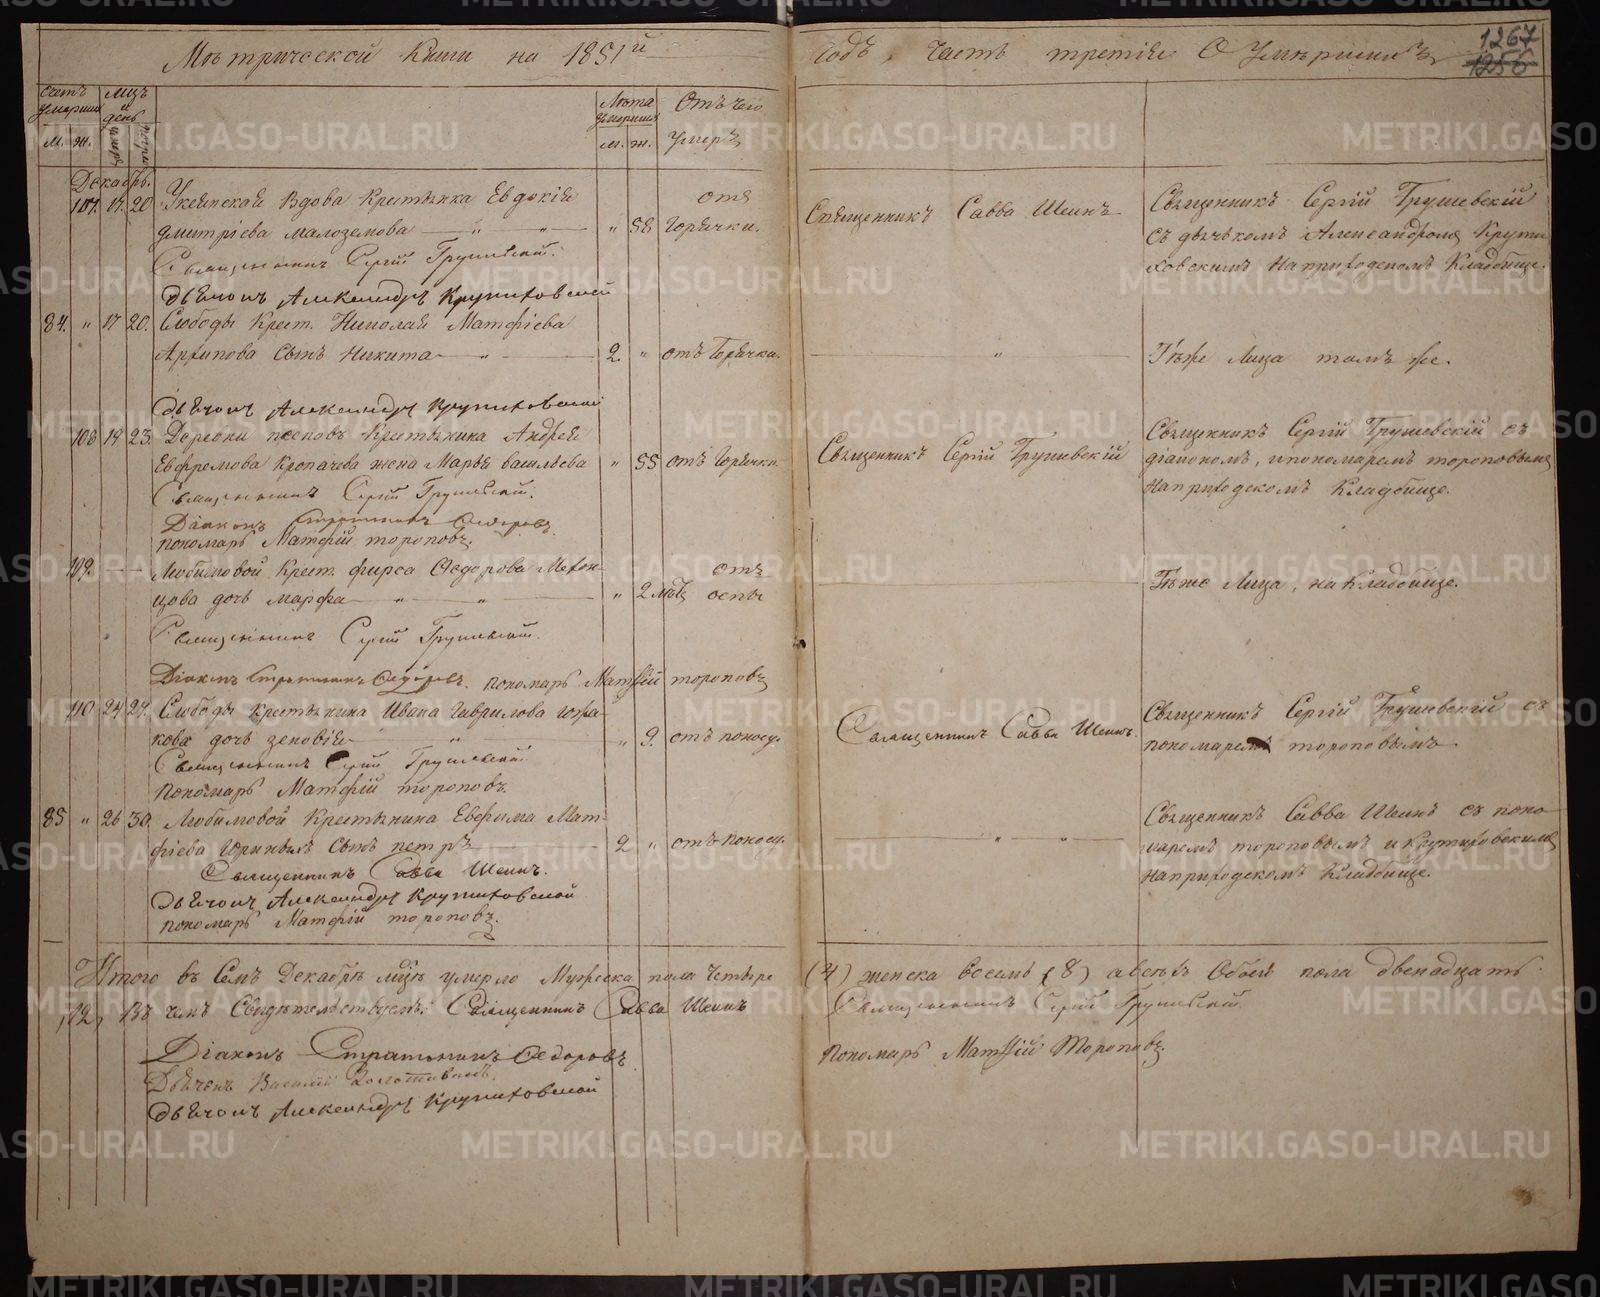 Метрической Книги на 1851й годъ, часть третія О Умершихъ
1267
1256
Счетъ умершихъ
Мцъ и день
Лѣта умершихъ
Отъ чего умеръ
м. ж.
м. ж.
Декабрь.
107. 17. 20 Вдова Крестьянка Евдокія
дмитріева малоземова " 58 отъ Горячки.
Священникъ Савва Шеинъ
Священникъ Сергій Грушевскій
съ дьячкомъ Александромъ Крути
ховскимъ на приходскомъ Кладбище.
Священникъ Сергій Грушевскій.
Дьячокъ Александръ Крутиховской
84. " 17 20. Слободы Крест. Николая Матфіева
Архипова сынъ Никита 2. " отъ Горячки.
" Тѣже Лица тамъ же.
Дьячокъ Александръ Крутиховской
108 19 23. Деревни Крестьянина Андрея
Ефремова Кропачева жена Марья васильева " 55 отъ Горячки.
Священникъ Сергій Грушевскій
Священникъ Сергій Грушевскій съ
діакономъ, и пономаремъ тороповымъ
на приходскомъ Кладбище.
Священникъ Сергій Грушевскій.
Діаконъ Стратоникъ Ѳедоровъ.
пономарь Матфій тороповъ
109. Любимовой Крест. фирса Ѳедорова
цова дочь марфа " 2 мѣц отъ оспы
Тѣже Лица, на Кладбище.
Священникъ Сергій Грушевскій.
Діаконъ Стратоникъ Ѳедоровъ. пономарь Матфій тороповъ
110. 24 27. Слободы крестьянина Ивана Гаврилова Южа-
кова дочь зеновія " 9. отъ поносу.
Священникъ Савва Шеинъ.
Священникъ Сергій Грушевскій съ
пономаремъ тороповымъ.
Священникъ Сергій Грушевскій
пономарь Матфій тороповъ.
85 " 26 30. Любимовой Крестьянина Евфима Мат-
фіева сынъ петръ 2 " отъ поносу.
Священникъ Савва Шеинъ съ поно
маремъ тороповымъ и Крутиховскимъ
на приходскомъ Кладбище.
Священникъ Савва Шеинъ.
Дьячокъ Александръ Крутиховской
пономарь Матфій тороповъ.
Итого въ Семъ Декабрѣ мцѣ умерло Мужеска пола четыре (4) женска восемь (8) а всѣхъ Обоего пола двенадцать
12, Въ чемъ Свидѣтельствуемъ: Священникъ Савва Шеинъ
Священникъ Сергій Грушевскій
Діаконъ Стратоникъ Ѳедоровъ.
пономарь Матфій Тороповъ.
Дьячекъ Василій
Дьячокъ Александръ Крутиховской
METRIKI.GASO-URAL.RU